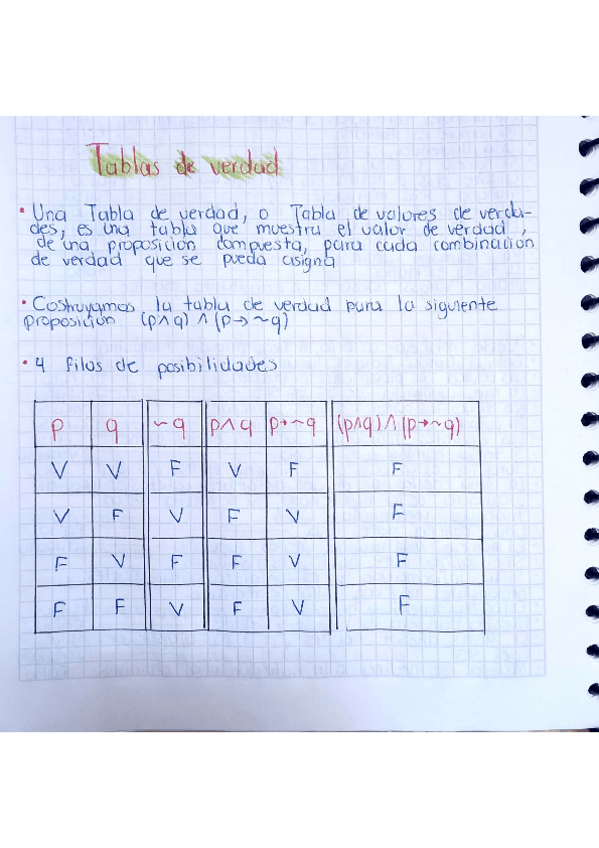 Tablas de verdad
• Una Tabla de verdad, o Tabla de valores de verda-
des, es una tabla que muestra el valor de verdad,
de una proposicion compuesta, para cada combinacion
de verdad que se pueda asigna
• Costruyamos la tabla de verdad para la siguiente
proposición (p∧q) ∧ (p→ ~q)
• 4 filas de posibilidades
p q ~q p∧q p→~q (p∧q)∧(p→~q)
V V F V F F
V F V F V F
F V F F V F
F F V F V F